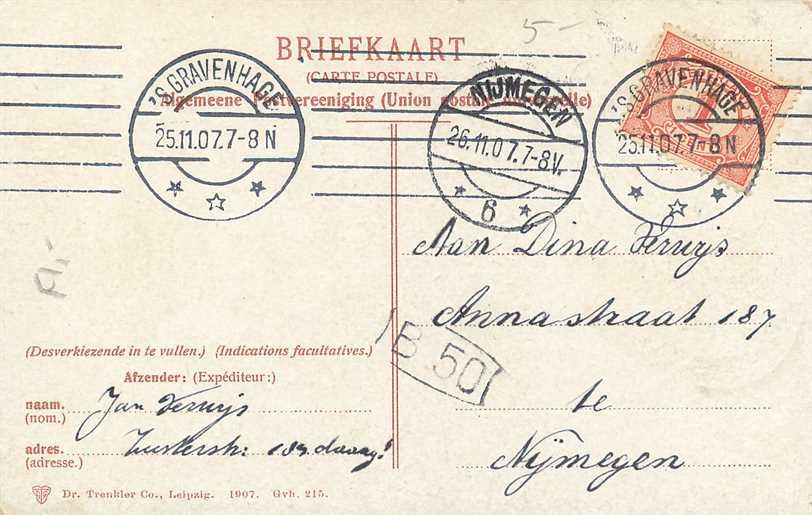 5-
BRIEFKAART
(CARTE POSTALE)
Algemeene Postvereeniging (Union postale universelle)
'S GRAVENHAGE
25.11.07.7-8 N
NIJMEGEN
26.11.07.7-8V.
6
'S GRAVENHAGE
25.11.07.7-8 N
1
Aan Dina Verwijs
Annastraat 187
te
Nijmegen
B 50
(Desverkiezende in te vullen.) (Indications facultatives.)
Afzender: (Expéditeur:)
naam. Jan Verwijs
(nom.)
adres.
(adresse.)
Dr. Trenkler Co., Leipzig. 1907. Gvh. 215.